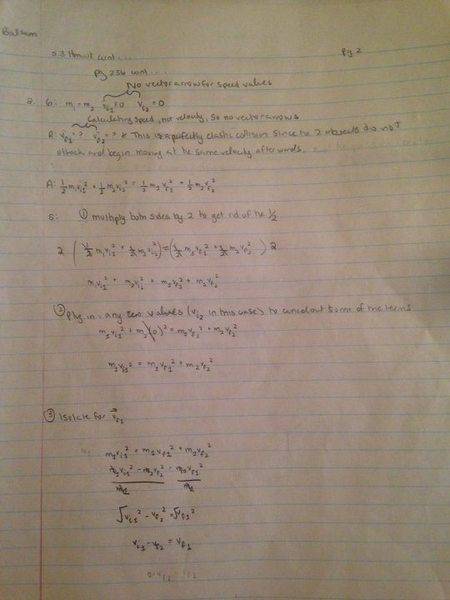 Balsam
5.3 Hmwk cont ....
Pg 2
Pg 236 cont ...
No vector arrow for speed values
2. G: m₁ = m₂ ≠ 0 v_f2 = 0
Calculating speed, not velocity, so no vector arrows
R: v_f1 = ? v_f2 = ? * This is a perfectly elastic collision since the 2 objects do not
attach and begin moving at the same velocity afterwords.
A: ½ m₁v_i1² + ½ m₂v_i2² = ½ m₁v_f1² + ½ m₂v_f2²
S: ① multiply both sides by 2 to get rid of the ½
2 (½ m₁v_i1² + ½ m₂v_i2²) = (½ m₁v_f1² + ½ m₂v_f2²) 2
m₁v_i1² + m₂v_i2² = m₁v_f1² + m₂v_f2²
② Plug in any zero values (v_i2 in this case) to cancel out some of the terms
m₁v_i1² + m₂(0)² = m₁v_f1² + m₂v_f2²
m₁v_i1² = m₁v_f1² + m₂v_f2²
③ Isolate for v_f1
m₁v_i1² = m₁v_f1² + m₂v_f2²
m₁v_i1² - m₂v_f2² = m₁v_f1²
m₁ m₁
√v_i1² - v_f2² = √v_f1²
v_i1 - v_f2 = v_f1